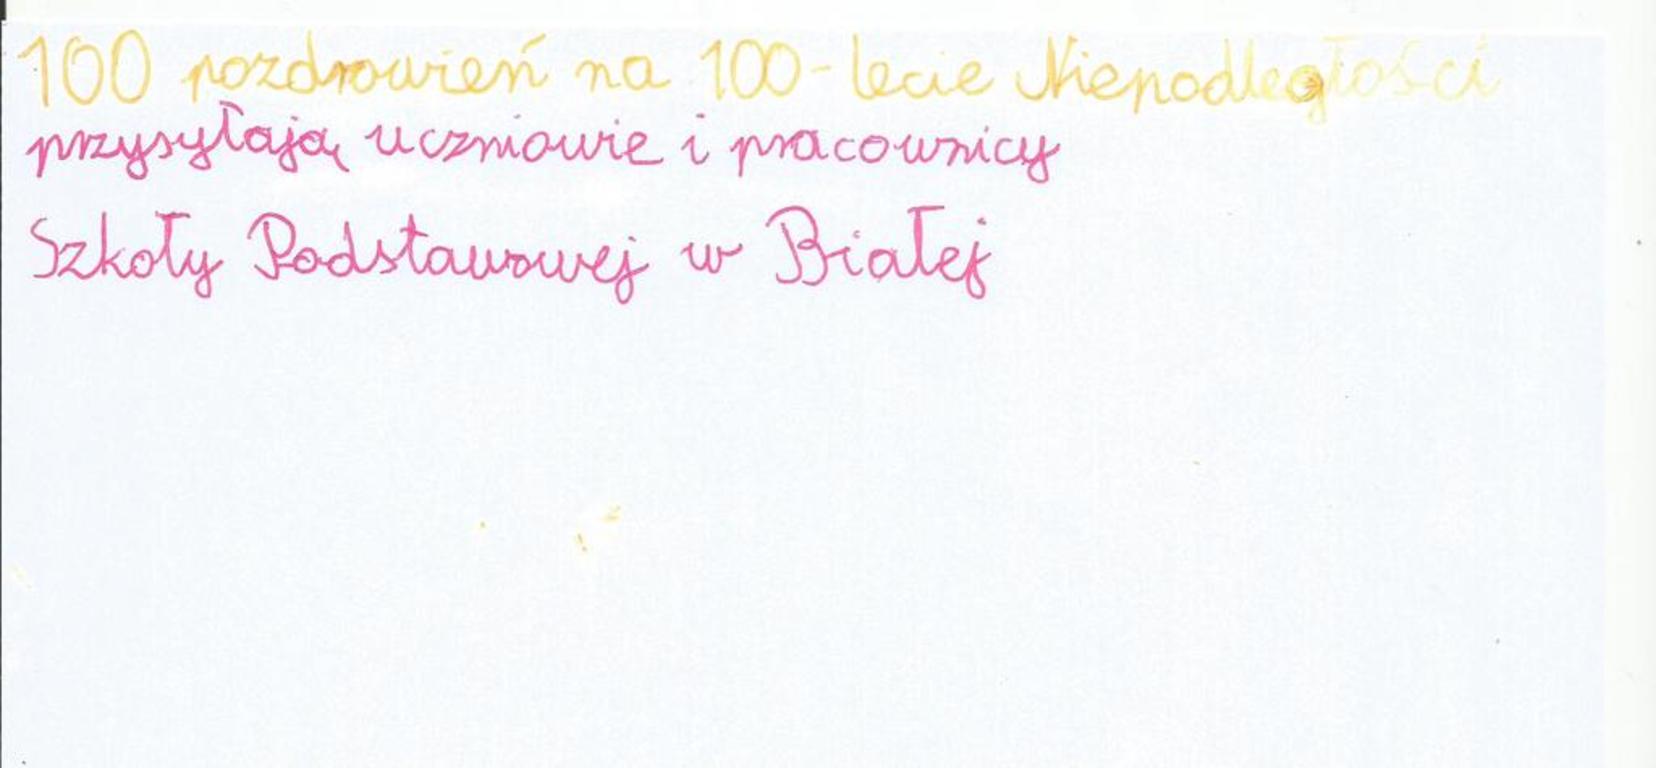 100 pozdrowień na 100-lecie Niepodległości
przysyłają uczniowie i pracownicy
Szkoły Podstawowej w Białej